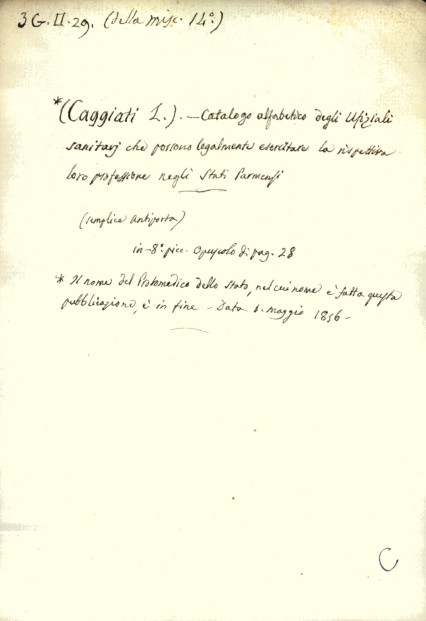 3 G. II. 29. (della misc. 14ª.)
*(Caggiati L.). — Catalogo alfabetico degli Ufiziali
sanitarj che possono legalmente esercitare la rispettiva
loro professione negli Stati Parmensi
(semplice antiporta)
in-8º. picc. Opuscolo di pag. 28
* Il nome del Protomedico dello Stato, nel cui nome è fatta questa
pubblicazione, è in fine — Data 1. maggio 1856 —
C